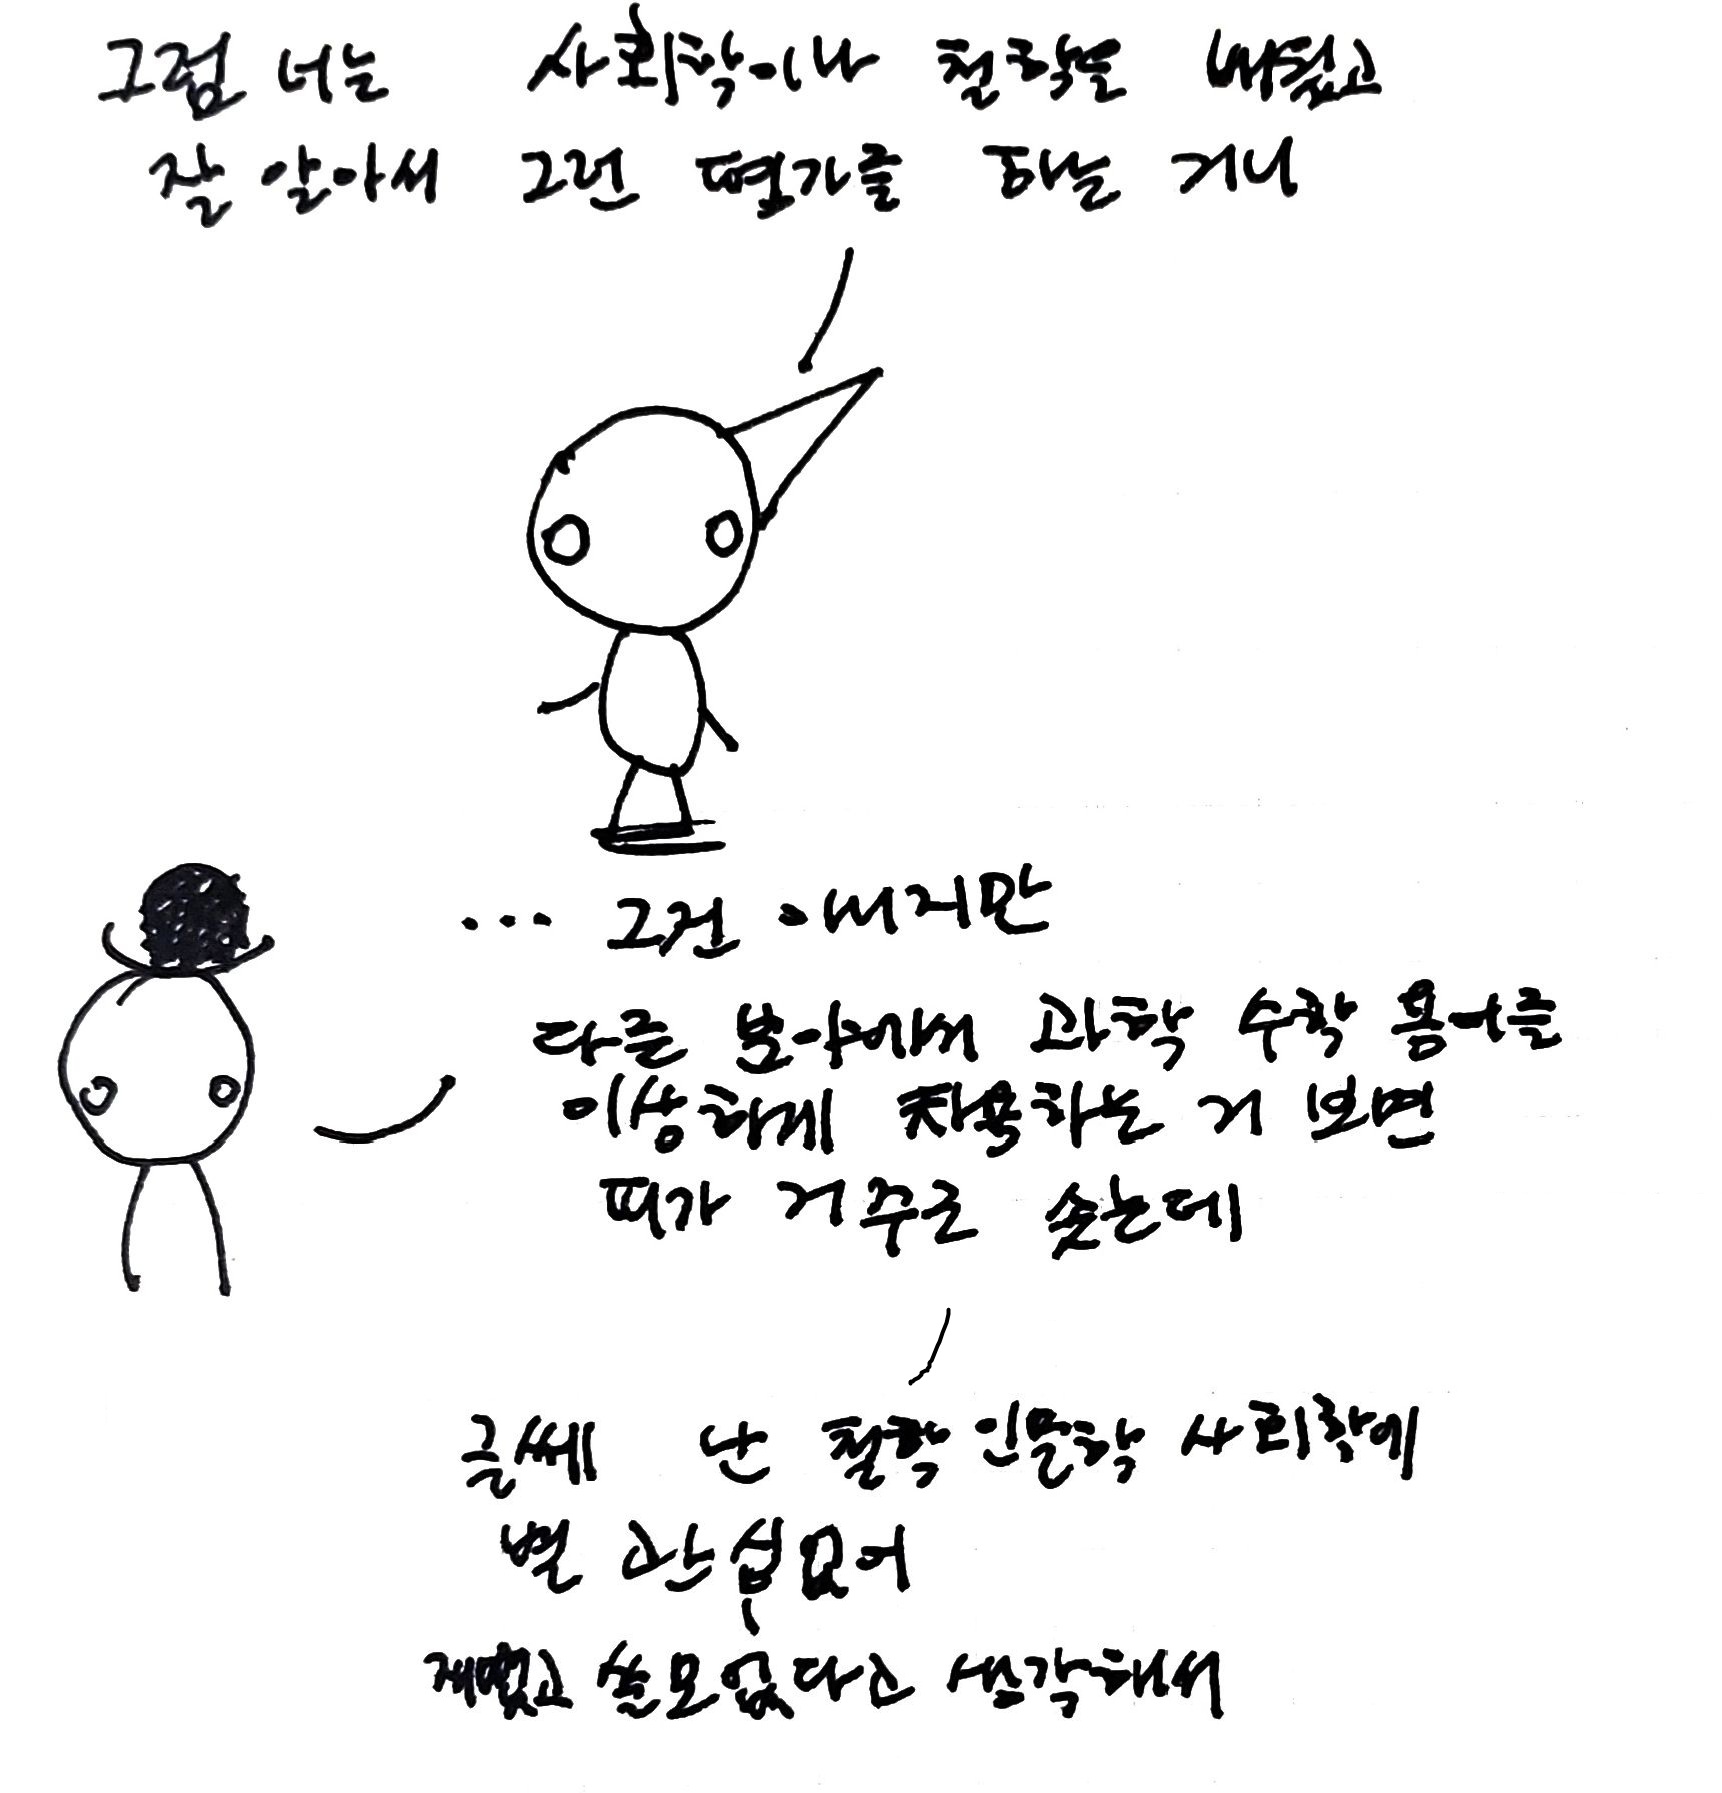 그럼 너는 사회학이나 철학을 배웠고
잘 알아서 그런 평가를 하는 거니
... 그건 아니지만
다른 분야에서 과학 수학 용어를
이상하게 차용하는 거 보면
피가 거꾸로 솟는데
글쎄 난 철학 인문학 사회학에
별 관심없어
재미없고 쓸모없다고 생각해서